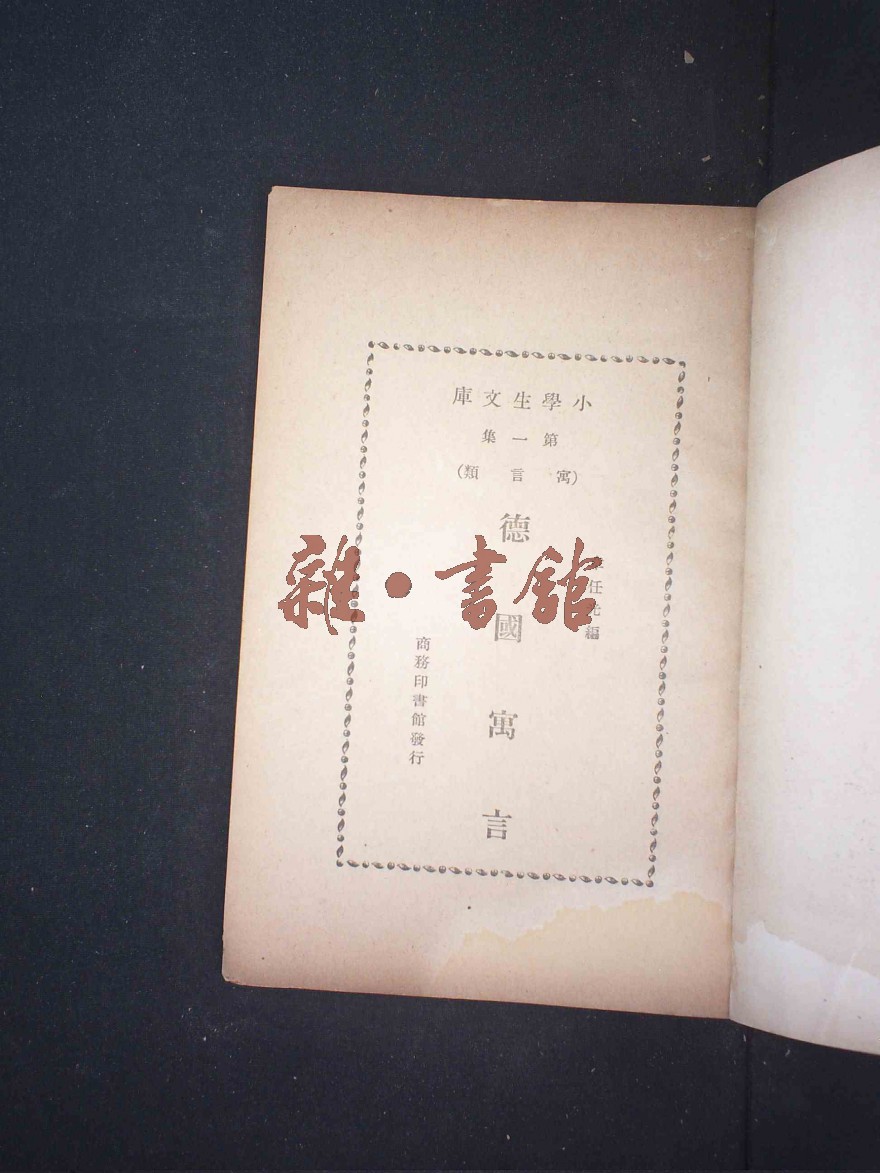 小學生文庫
第一集
(寓言類)
任
編
德國寓言
商務印書館發行
雜·書館